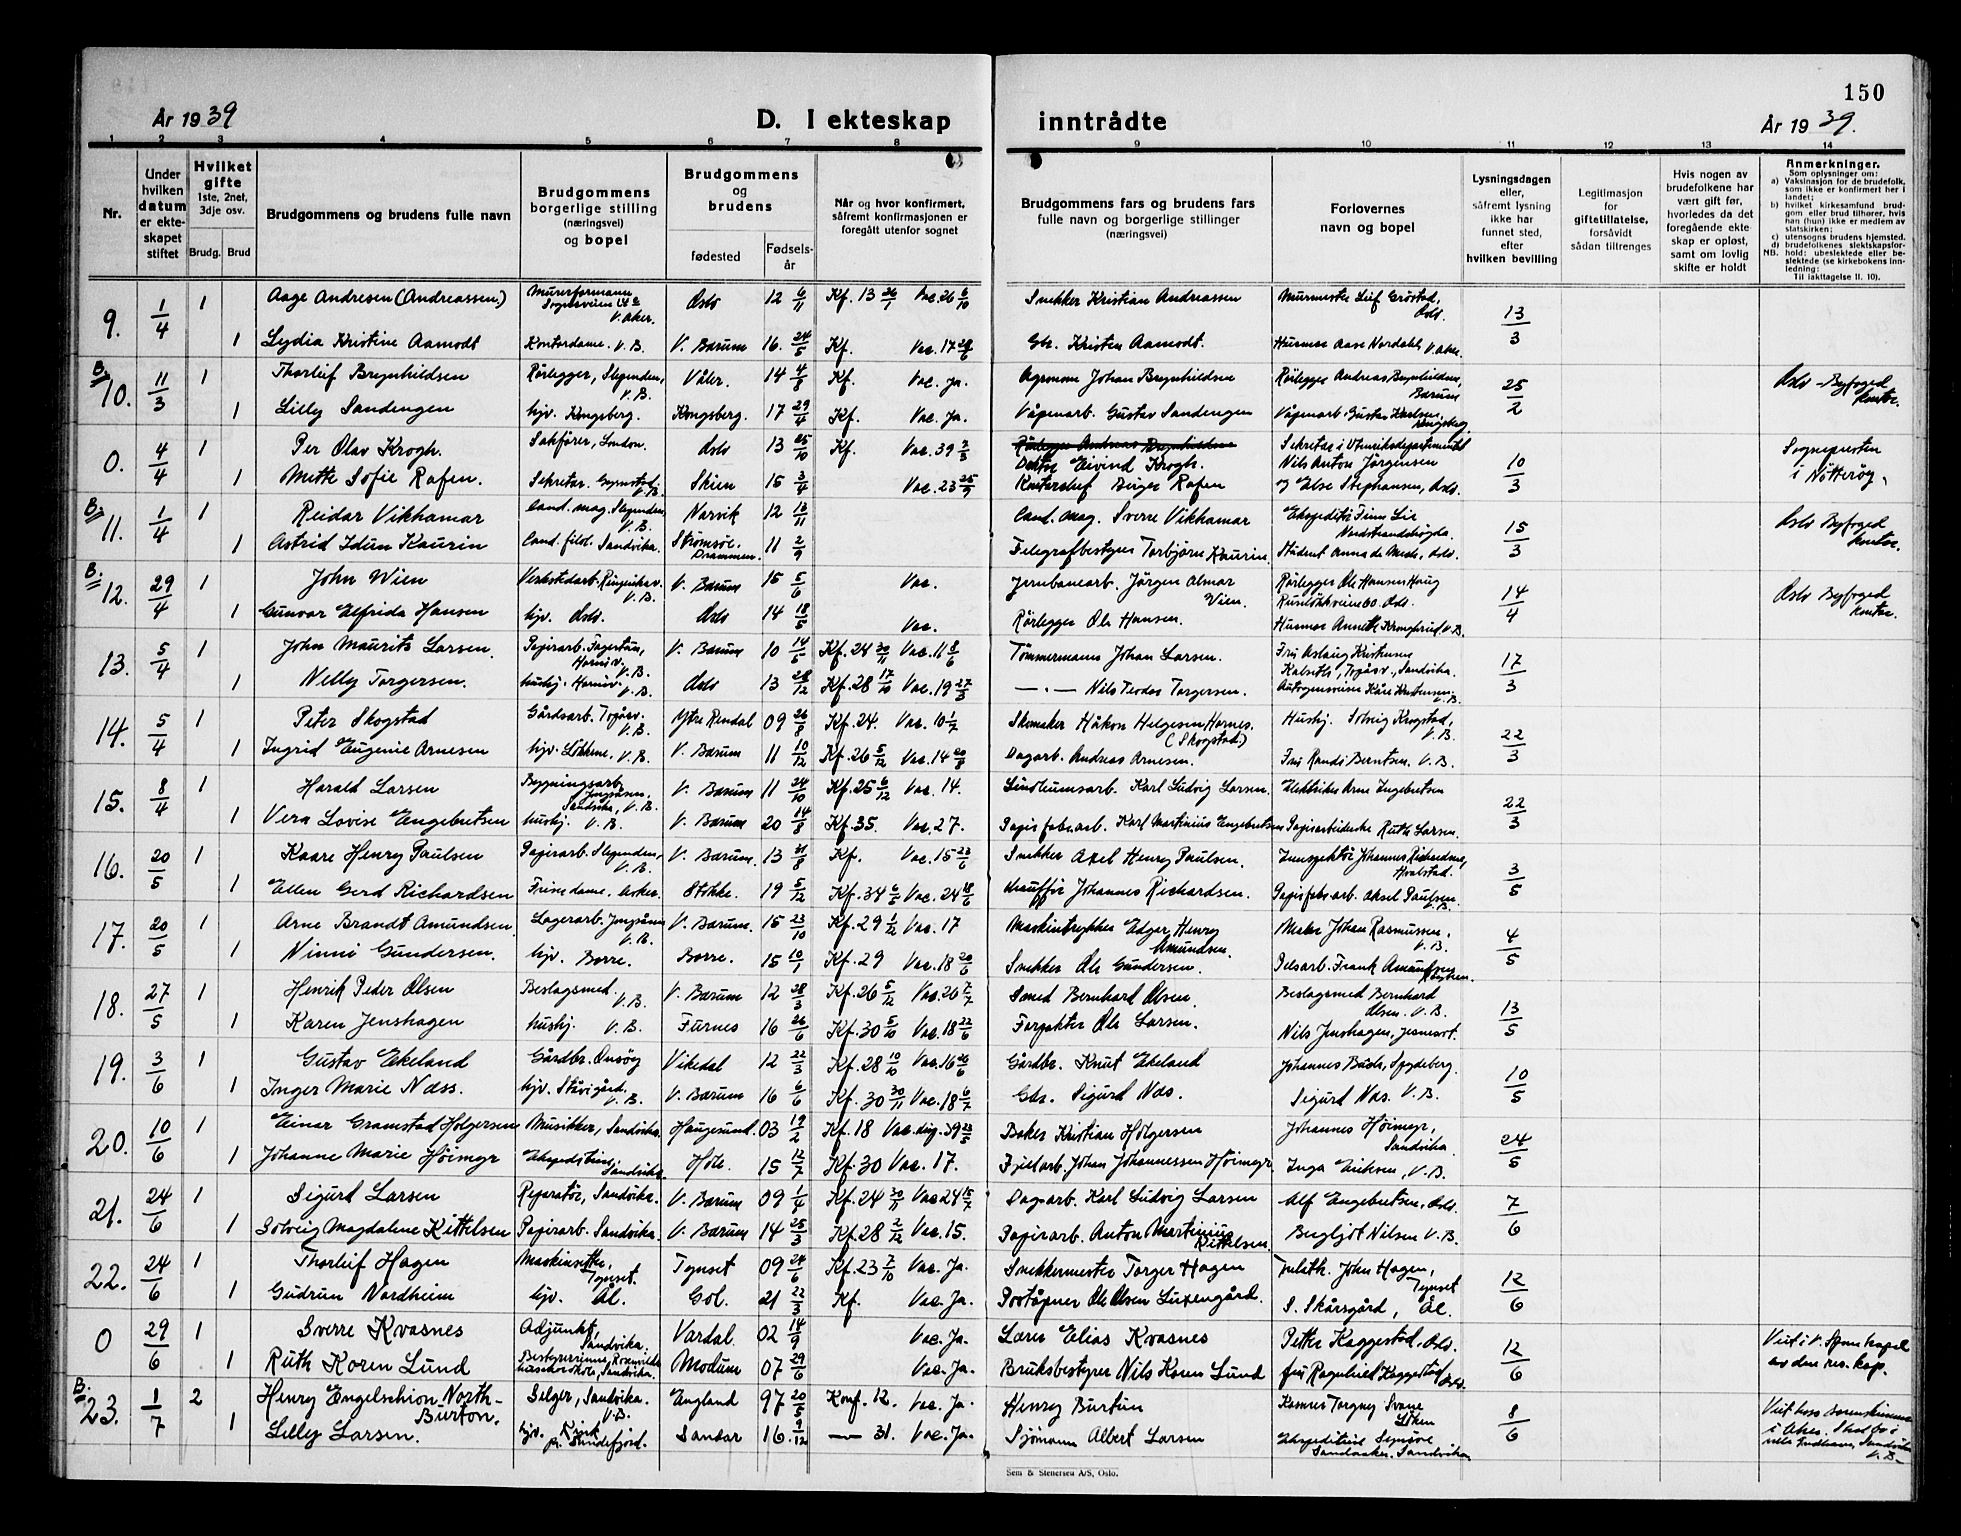 150
År 1939
D. I ekteskap inntrådte
År 1939.
1 2 3 4 5 6 7 8 9 10 11 12 13 14
Nr.
Under hvilken datum er ekteskapet stiftet
Hvilket gifte 1ste, 2net, 3dje osv.
Brudg. Brud
Brudgommens og brudens fulle navn
Brudgommens borgerlige stilling (næringsvei) og bopel
Brudgommens og brudens
fødested
Fødselsår
Når og hvor konfirmert, såfremt konfirmasjonen er foregått utenfor sognet
Brudgommens fars og brudens fars fulle navn og borgerlige stillinger (næringsvei)
Forlovernes navn og bopel
Lysningsdagen eller, såfremt lysning ikke har funnet sted, efter hvilken bevilling
Legitimasjon for giftetillatelse, forsåvidt sådan tiltrenges
Hvis nogen av brudefolkene har vært gift før, hvorledes da det foregående ekteskap er opløst, samt om lovlig skifte er holdt
Anmerkninger.
Som oplysninger om:
a) Vaksinasjon for de brudefolk, som ikke er konfirmert her i landet;
b) hvilket kirkesamfund brudgom eller brud tilhører, hvis han (hun) ikke er medlem av statskirken;
c) utensogns brudens hjemsted.
d) brudefolkenes slektskapsforhold: ubeslektede eller beslektede (se kirkebokens Innledning:
NB. Til iakttagelse II. 10).
9. 1/4 1 Aage Andresen (Andreassen) Murerformann Sognsveien V. Aker. Oslo 12 6/11 Kf. 13 26/1 Vac. 26 6/10 Snekker Kristian Andreassen Murmester Leif Grøstad, Oslo. 13/3
1 Lydia Kristine Aamodt Kontordame. V. B. V. Bærum 16. 24/5 Kf. Vac. 17 28/6 Gbr. Kristen Aamodt. Husmor Aase Nordahl, V. Aker.
B. 10. 11/3 1 Thorleif Brynhildsen Rørlegger, Slependen, V. B. Våler. 14 4/8 Kf. Vac. Ja. Agronom Johan Brynhildsen Rørlegger Andreas Brynhildsen, Bærum 25/2 Oslo Byfoged kontor.
1 Lilly Sandengen hjv. Kongsberg. Kongsberg. 17 29/4 Kf. Vac. Ja. Våpenarb. Gustav Sandengen Våpenarb. Gustav Karlsen, Kongsberg.
0. 4/4 1 Per Olav Krogh. Sakfører, London. Oslo 13 25/10 Kf. Vac. 39 7/3 Rørlegger Andreas Brynhildsen Doktor Eivind Krogh. Sekretær i Utenriksdepartementet Nils Anton Jørgensen 10/3 Sognepresten i Nøtterøy.
1 Mette Sofie Rafen. Sekretær. Gyssestad, V. B. Skien 15 3/4 Vac. 23 25/9 Kontorchef Birger Rafen og Else Stephansen, Oslo.
B. 11. 1/4 1 Reidar Vikhamar Cand. mag. Slependen V. B. Narvik 12 13/11 Cand. mag. Sverre Vikhamar Ekspeditør Finn Lie Nordstrandshøgda. 15/3 Oslo Byfoged kontor.
1 Astrid Idun Kaurin Cand. filol. Sandvika. Strømsø. Drammen. 11 2/9 Telegrafbestyrer Torbjørn Kaurin Student Anna de Mede, Oslo.
B. 12. 29/4 1 John Wien Verkstedarb. Ringeriksv. V. B. V. Bærum 15 5/6 Vac. Jernbanearb. Jørgen Almar Wien. Rørlegger Ole Hansen Haug Ruseløkkveien 60. Oslo. 14/4 Oslo Byfoged kontor.
1 Gunvor Elfrida Hansen hjv. Oslo. Oslo 14 18/5 Vac. Rørlegger Ole Hansen. Husmor Anneth V. B.
13. 5/4 1 John Maurits Larsen. Papirarb. Fagertun, Hornisv. V. B. V. Bærum 10 14/5 Kf. 24 30/11 Vac. 11 8/6 Tømmermann Johan Larsen. Frk Aslaug Kristensen Kalseth, Sandvika. 17/3
1 Nelly Torgersen. Hushj. Hornisv. V. B. Oslo 13 28/12 Kf. 28 17/10 Vac. 19 27/3 —.— Nils Teodor Torgersen. Kåre Kristensen V. B.
14. 5/4 1 Peter Skogstad Gårdsarb. V. B. Ytre Rendal 09 26/8 Kf. 24. Vac. 10 1/7 Skomaker Håkon Helgesen Hornes. (Skogstad.) Hushj. Solveig Krogstad, V. B. 22/3
1 Ingrid Eugenie Arnesen hjv. Løkkene, V. B. V. Bærum 11 10/12 Kf. 26 5/12 Vac. 14 20/8 Dagarb. Andreas Arnesen. Frk Randi Berntsen. V. B.
15. 8/4 1 Harald Larsen Bygningsarb. Jongsåsen, Sandvika, V. B. V. Bærum 11 24/10 Kf. 25 6/12 Vac. 14. Linoleumsarb. Karl Ludvig Larsen. Elektriker Arne Ingebretsen 22/3
1 Vera Lovise Engebretsen Hushj. V. B. V. Bærum 20 14/8 Kf. 35. Vac. 27. Papirfabr.arb. Karl Martinius Engebretsen Papirarbeiderske Ruth Larsen.
16. 20/5 1 Kaare Henry Paulsen Papirarb. Slependen, V. B. V. Bærum. 13 31/8 Kf. Vac. 15 23/6 Snekker Axel Henry Paulsen. Innspektør Johannes Richardsen, Hvalstad. 3/5
1 Ellen Gerd Richardsen Frisedame. Asker. Stokke. 19 5/12 Kf. 34 6/5 Vac. 24 18/6 Chauffør Johannes Richardsen. Papirfabr.arb. Aksel Paulsen. V. B.
17. 20/5 1 Arne Brandt Amundsen. Lagerarb. Jongsåsen V. B. V. Bærum. 15 23/10 Kf. 29 1/12 Vac. 17 Maskintrykker Edgar Henry Amundsen. Maler Johan Rasmussen. V. B. 4/5
1 Ninni Gundersen. hjv. Borre. Borre. 15 10/1 Kf. 29 Vac. 18 20/6 Snekker Ole Gundersen. Pelsarb. Frank Amundsen
18. 27/5 1 Henrik Peder Olsen Beslagsmed. V. B. V. Bærum 12 28/3 Kf. 26 5/12 Vac. 26 7/7 Smed Bernhard Olsen. Beslagsmed Bernhard Olsen. V. B. 13/5
1 Karen Jenshagen Hushj. V. B. Furnes 16 26/6 Kf. 30 5/10 Vac. 18 22/6 Forpakter Ole Larsen. Nils Jenshagen,
19. 3/6 1 Gustav Ekeland Gårdbr. Onsøy Vikedal 12 22/3 Kf. 28 10/10 Vac. 16 26/6 Gårdbr. Knut Ekeland Johannes Buds, Spydeberg. 10/5
1 Inger Marie Næss. hjv. Stavigård. V. B. V. Bærum 16 6/6 Kf. 30 30/11 Vac. 18 6/7 Gbr. Sigurd Næs. Sigurd Næs. V. B.
20. 10/6 1 Einar Gramstad Holgersen Musikker, Sandvika. Haugesund. 03 19/2 Kf. 18 Vac. disp. 39 23/5 Baker Kristian Holgersen Johannes Høimyr, Sandvika 24/5
1 Johanne Marie Høimyr Ekspeditrise, Sandvika Hole. 15 12/7 Kf. 30 Vac. 17. Fjellarb. Johan Johannessen Høimyr. Inga Eriksen, V. B.
21. 24/6 1 Sigurd Larsen Reparatør, Sandvika. V. Bærum 09 1/4 Kf. 24 30/11 Vac 24 15/7 Dagarb. Karl Ludvig Larsen Alf Engebretsen, Oslo. 7/6
1 Solveig Magdalene Kittelsen Papirarb. Sandvika. V. Bærum 14 25/3 Kf. 28 2/12 Vac. 15. Papirarb. Anton Martinius Kittelsen. Bergljot Nilsen V. B.
22. 24/6 1 Thorleif Hagen Maskinsetter, Tynset. Tynset 09 24/6 Kf. 23 7/10 Vac. Ja. Snekkermester Torger Hagen John Hagen, Tynset 12/6
1 Gudrun Nordheim hjv. Ål. Gol. 21 22/3 Kf. Vac. Ja. Poståpner Ole Olsen S. Skårsgård, Ål.
0 29/6 1 Sverre Kvasnes Adjunkt, Sandvika. Vardal. 02 14/9 Vac. Ja. Lærer Elias Kvasnes Petter Kaggestad, Oslo. 12/6 Viet i V. kapel av den res. kap.
1 Ruth Koren Lund Bestyrerinne, Sandvika. Modum 07 29/6 Vac. Ja. Bruksbestyrer Nils Koren Lund fru Ragnhild Kaggestad Oslo.
B. 23. 1/7 2 Henry Engelschion North-Burton. Selger, Sandvika. V. B. England 97 20/5 Konf. 12. Vac. Ja. Henry Burton Torgny Svane 8/6 Viet hos sorenskriveren i Aker. V. B.
1 Lilly Larsen. hjv. pr. Sandefjord. Sandar 16. 9/12 —— 31. Vac. Ja. Sjømann Albert Larsen Sandvika
Sem & Stenersen A/S, Oslo.